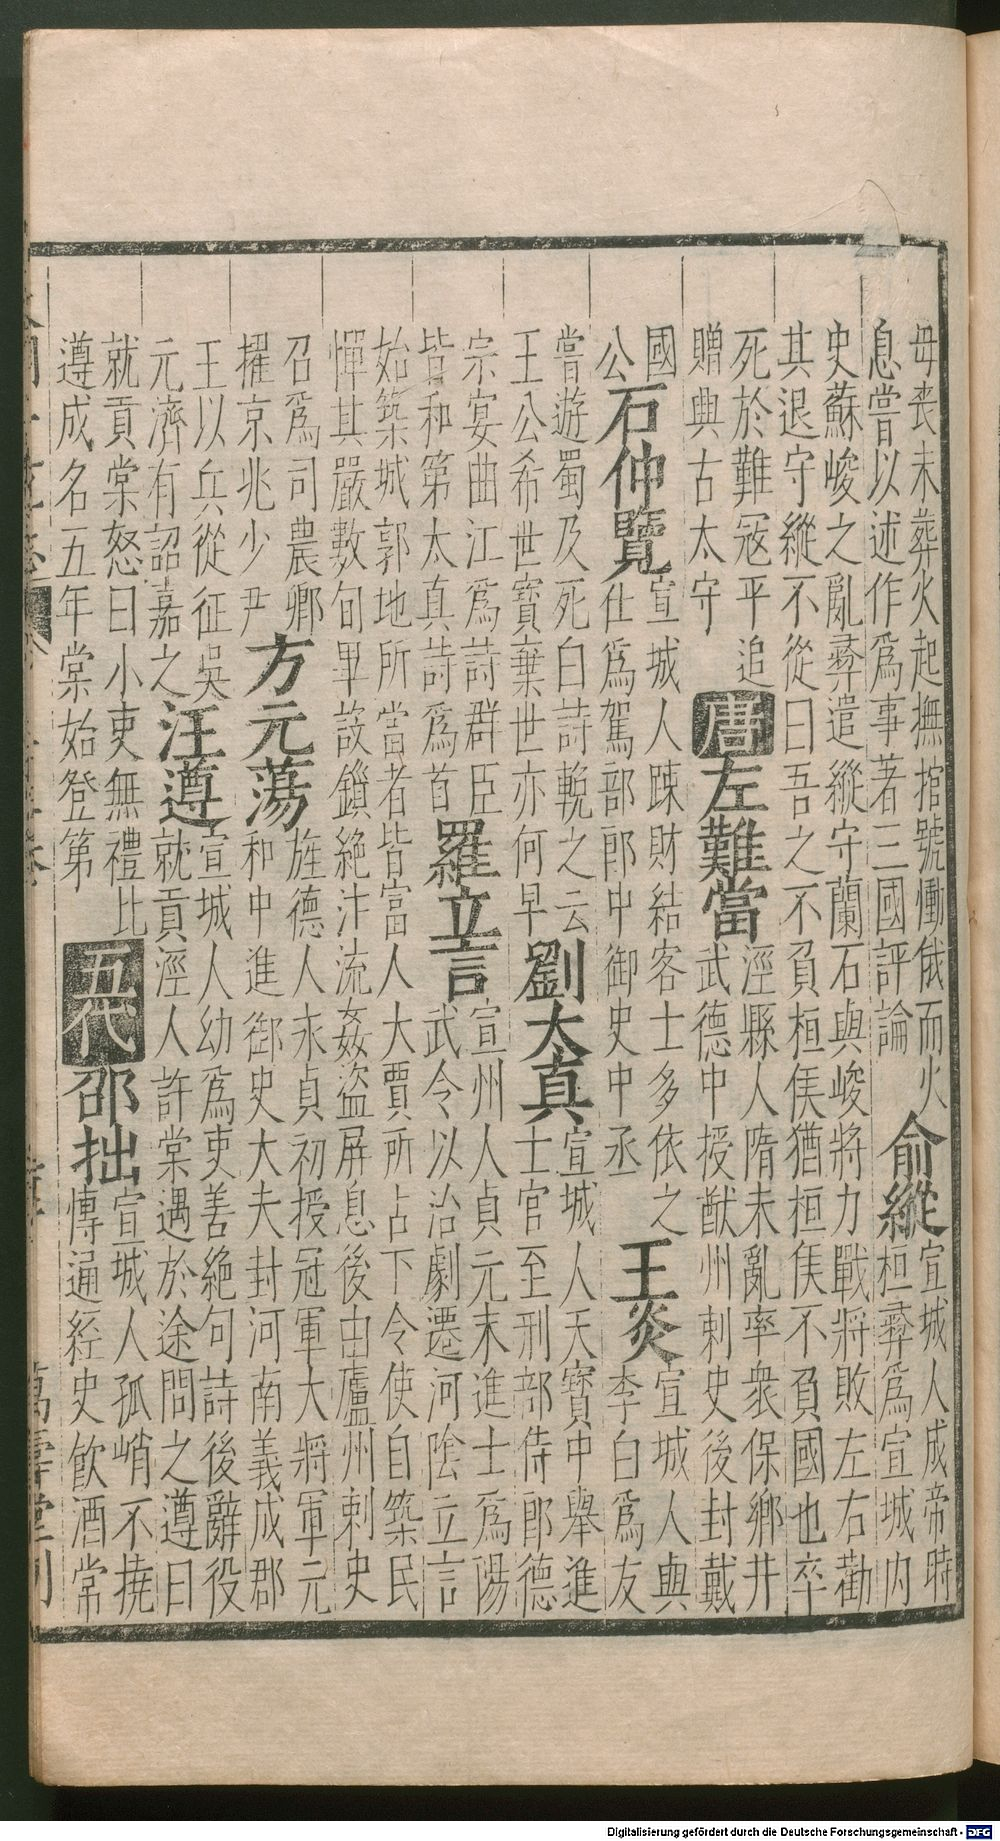 毋丧未葬火起撫棺號慟俄而火
息嘗以述作爲事著三國評論
俞縱
宣城人成帝時
桓彞爲宣城内
史蘇峻之亂彞遣縱守蘭石與峻將力戰將敗左右勸
其退守縱不從曰吾之不負桓侯猶桓侯不負國也卒
死於難冦平追
贈興古太守
唐
左難當
涇縣人隋末亂率衆保鄉井
武德中授猷州刺史後封戴
國
公
石仲覽
宣城人踈財結客士多依之
仕爲駕部郎中御史中丞
王炎
宣城人與
李白爲友
嘗遊蜀及死白詩輓之云
王公希世寶棄世亦何早
劉太真
宣城人天寶中舉進
士官至刑部侍郎德
宗宴曲江爲詩群臣
皆和第太真詩爲首
羅立言
宣州人貞元末進士爲陽
武令以治劇遷河隂立言
始築城郭地所當者皆富人大賈所占下令使自築民
憚其嚴數旬畢設鎖絶汴流姦盗屏息後由廬州刺史
召爲司農卿
擢京兆少尹
方元蕩
旌德人永貞初授冠軍大將軍元
和中進御史大夫封河南義成郡
王以兵從征吳
元濟有詔嘉之
汪遵
宣城人幼爲吏善絶句詩後辭役
就貢涇人許棠遇於途問之遵曰
就貢棠怒曰小吏無禮比
遵成名五年棠始登第
五代
邵拙
宣城人孤峭不撓
愽通經史飲酒常
萬壽堂刊
Digitalisierung gefördert durch die Deutsche Forschungsgemeinschaft - DFG